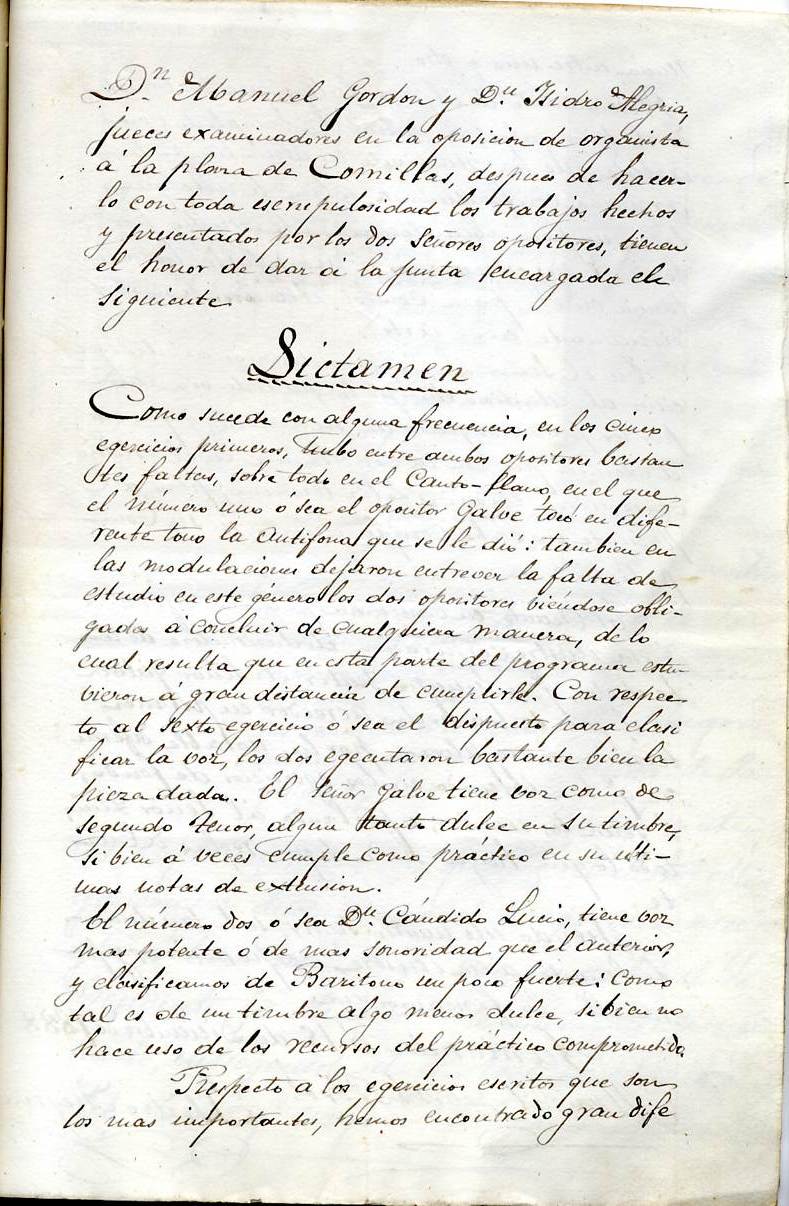 Dn. Manuel Gordon y Dn. Isidro Alegria,
jueces examinadores en la oposicion de organista
á la plaza de Comillas, despues de hacer-
lo con toda escrupulosidad los trabajos hechos
y presentados por los dos Señores opositores, tienen
el honor de dar á la Junta encargada el
siguiente
Dictamen
Como sucede con alguna frecuencia, en los cinco
egercicios primeros, hubo entre ambos opositores bastan
tes faltas, sobre todo en el Canto-llano, en el que
el número uno ó sea el opositor Galve tocó en dife-
rente tono la Antifona que se le dió: tambien en
las modulaciones dejaron entrever la falta de
estudio en este género los dos opositores biéndose obli-
gados á concluir de cualquiera manera, de lo
cual resulta que en esta parte del programa estu
bieron á gran distancia de cumplirle. Con respec-
to al sexto egercicio ó sea el dispuesto para clasi
ficar la voz, los dos egecutaron bastante bien la
pieza dada. El Señor Galve tiene voz como de
segundo Tenor, algun tanto dulce en su timbre,
si bien á veces cumple como práctico en su últi-
mas notas de extension.
El número dos ó sea Dn. Cándido Lucio, tiene voz
mas potente ó de mas sonoridad que el anterior,
y clasificamos de Baritono un poco fuerte: Como
tal es de un timbre algo menos dulce, si bien no
hace uso de los recursos del práctico comprometido.
Respecto á los egercicios escritos que son
los mas importantes, hemos encontrado gran dife